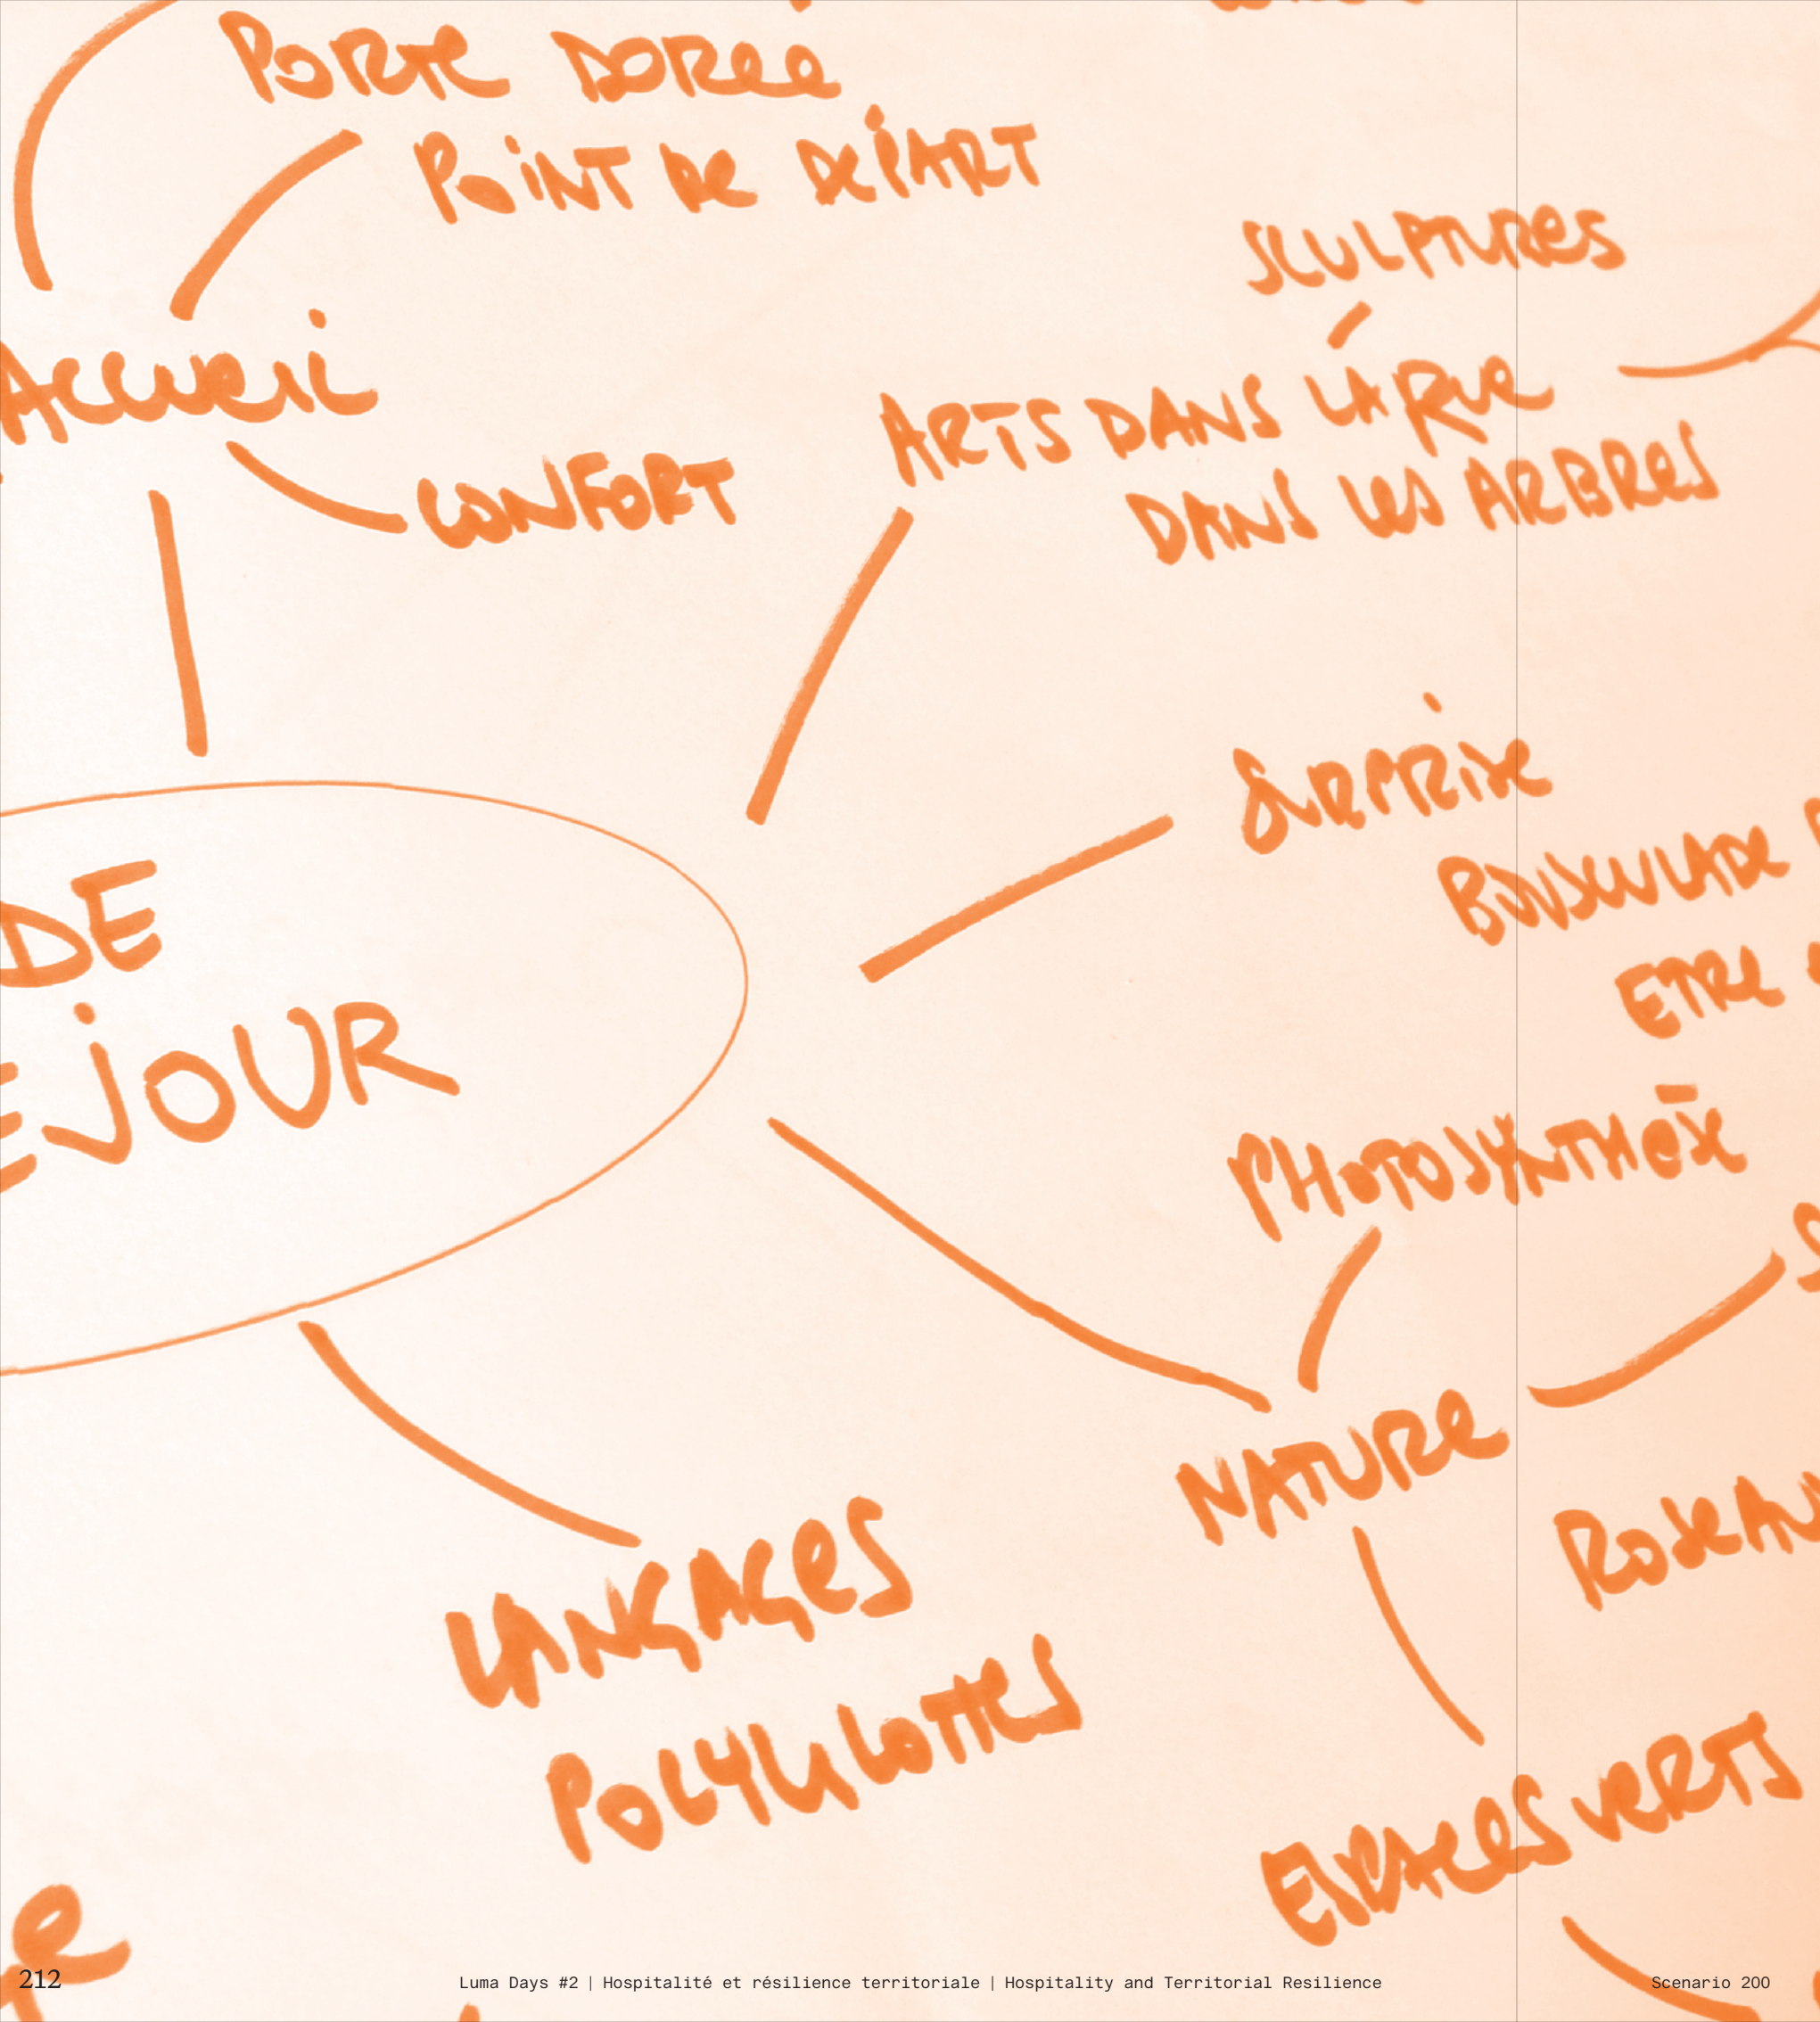 PORTE DOREE
POINT DE DEPART
SCULPTURES
ACCUEIL
ARTS DANS LA RUE
DANS LES ARBRES
CONFORT
SURPRISE
BOUSCULADE
ETRE
DE
EJOUR
PHOTOSYNTHÈSE
NATURE
ROSEAU
LANGAGES
POLYGLOTTES
ESPACES VERTS
212
Luma Days #2 | Hospitalité et résilience territoriale | Hospitality and Territorial Resilience
Scenario 200